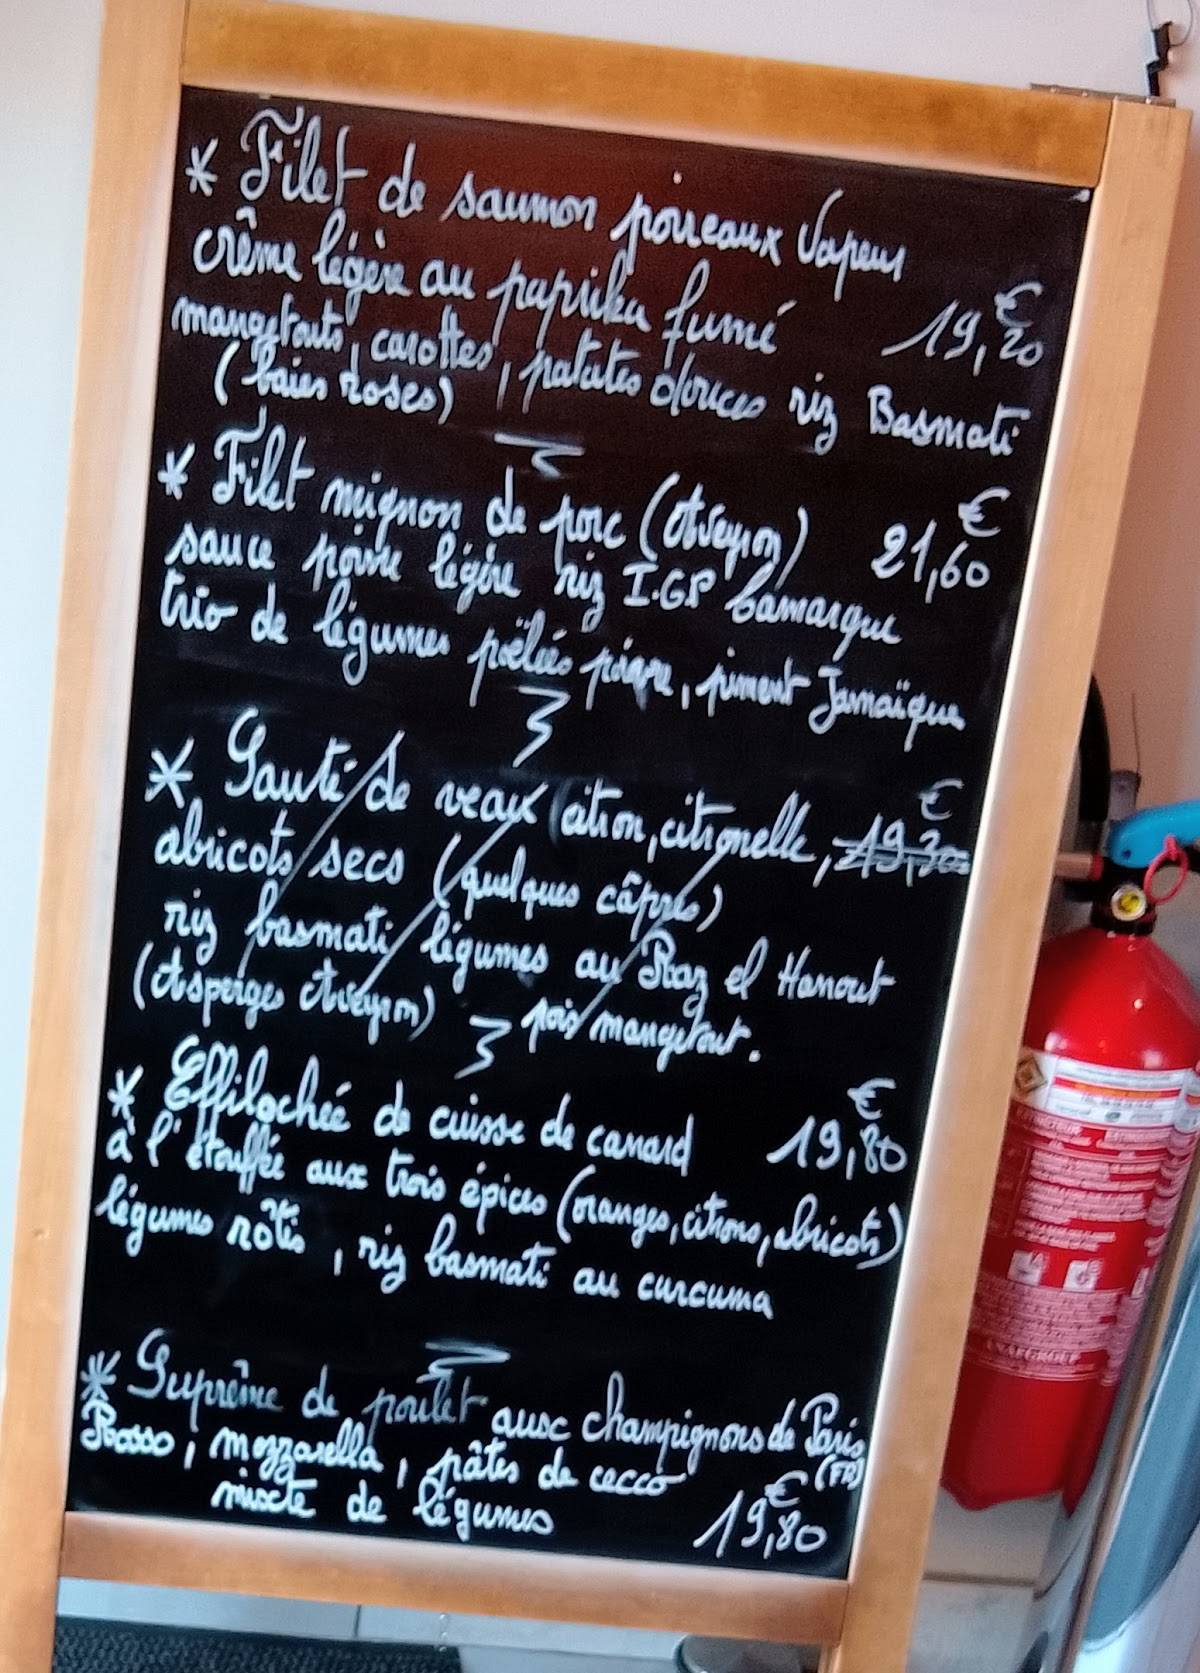 * Filet de saumon poireaux Vapeur
crème légère au paprika fumé 19,20 €
mangetouts, carottes, patates douces riz Basmati
(baies roses)
* Filet mignon de porc (Aveyron) 21,60 €
sauce poivre légère riz I.G.P Camargue
trio de légumes poëlés piment Jamaïque
* Sauté de veau citron, citronelle, 19,30 €
abricots secs (quelques câpres)
riz basmati légumes au Raz el Hanout
(Asperges Aveyron) pois mangetout.
* Effilochée de cuisse de canard 19,80 €
à l'étouffée aux trois épices (oranges, citrons, abricots)
légumes rôtis, riz basmati au curcuma
* Suprême de poulet aux champignons de Paris
Rosso, mozzarella, pâtes de cecco (FR)
mixte de légumes 19,80 €